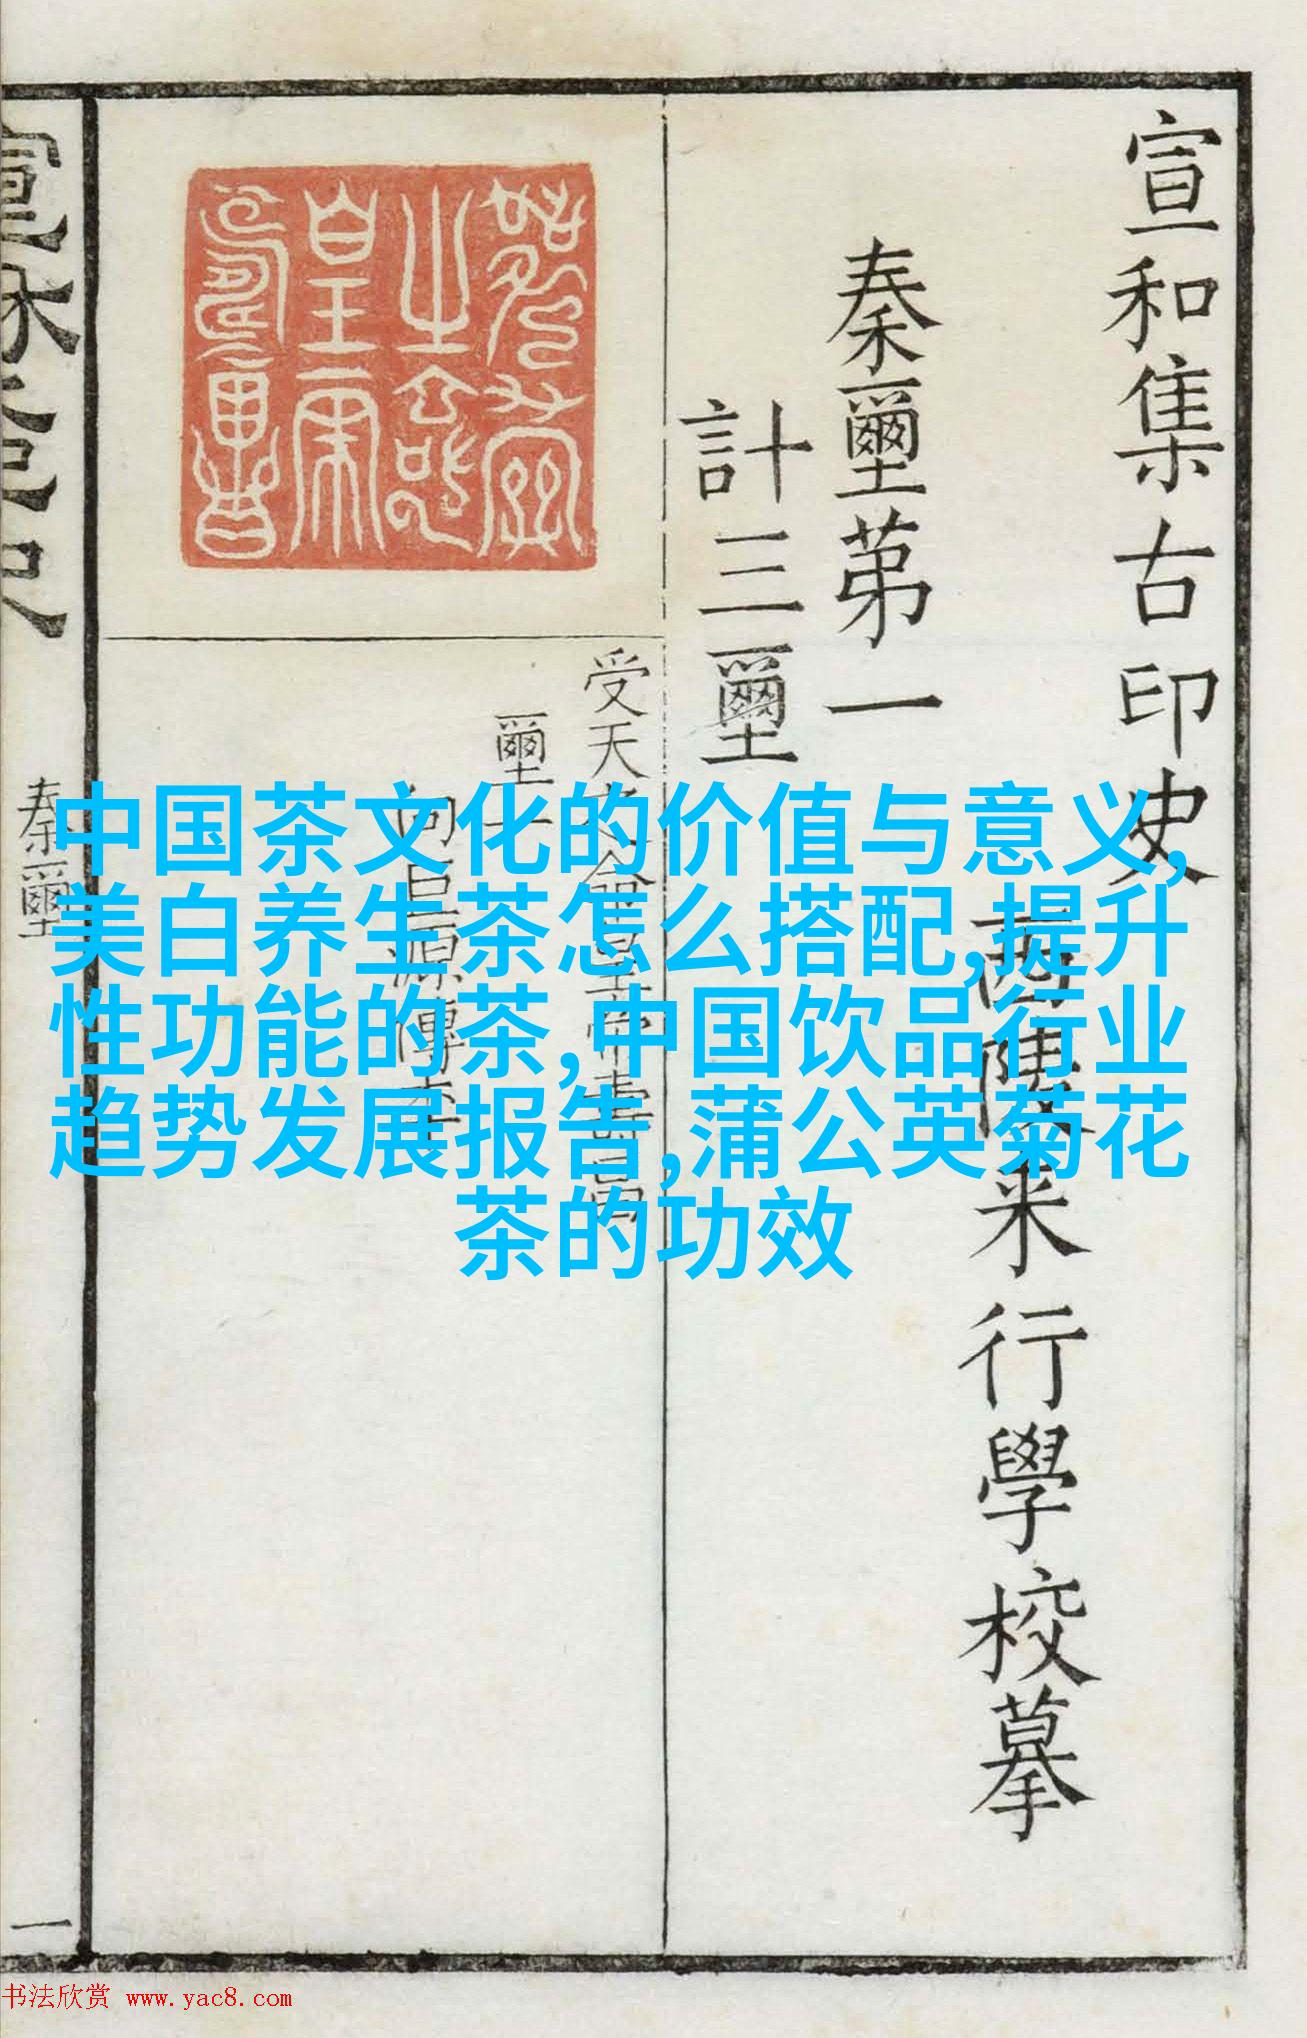 宣和集古印史
西陵来行學校摹
秦璽第一
計三璽
受天之命皇帝壽昌
璽一
向巨源傳本
秦璽
一
中国茶文化的价值与意义,
美白养生茶怎么搭配,提升
性功能的茶,中国饮品行业
趋势发展报告,蒲公英菊花
茶的功效
书法欣赏 www.yac8.com